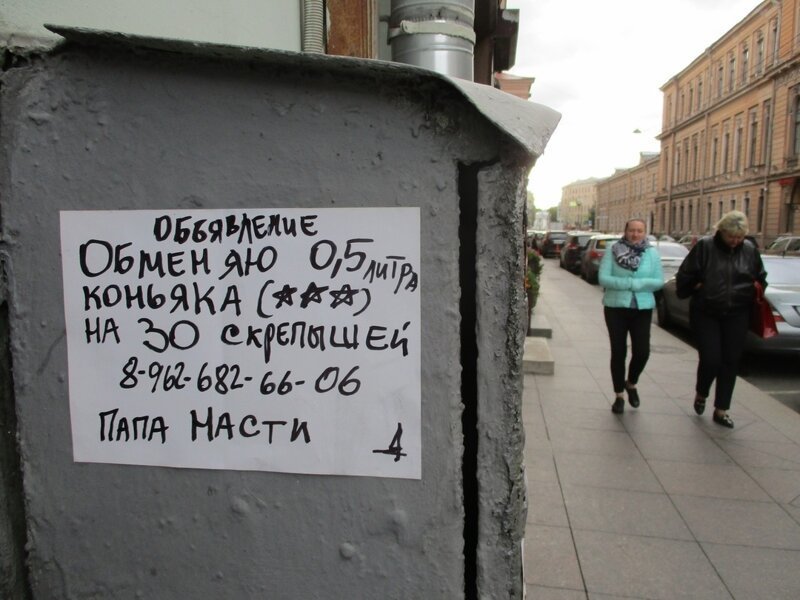 ОБЬЯВЛЕНИЕ
ОБМЕНЯЮ 0,5 ЛИТРА
КОНЬЯКА (★★★)
НА 30 СКРЕПЫШЕЙ
8-962-682-66-06
ПАПА НАСТИ